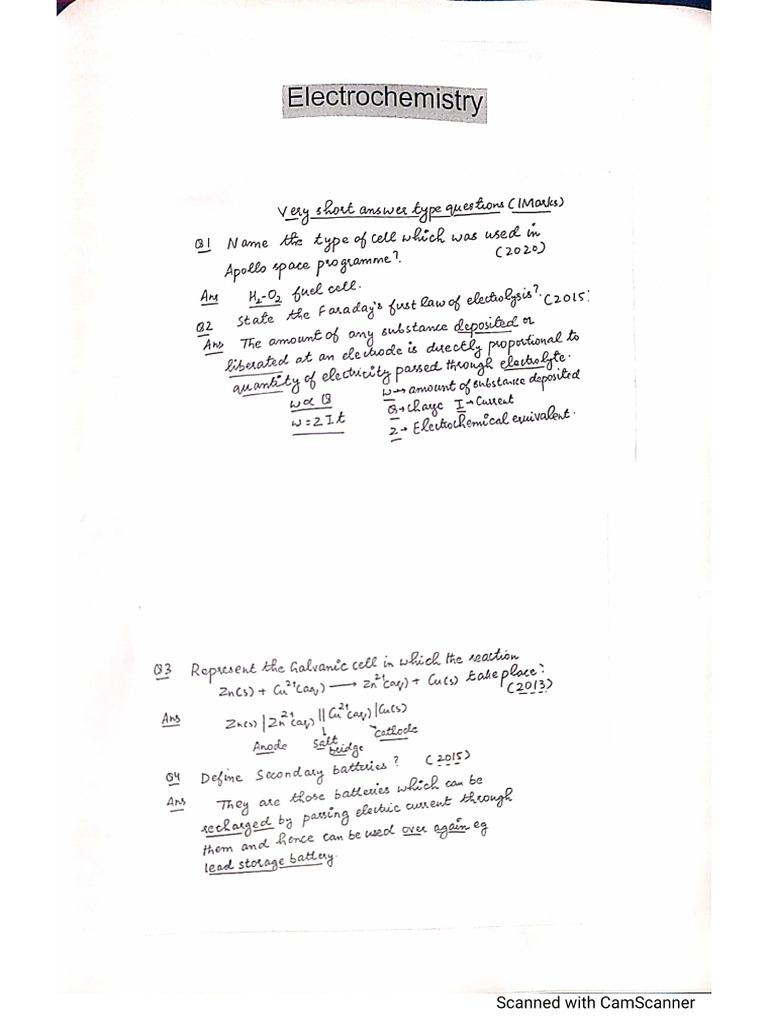 Electrochemistry
Very short answer type questions (1Marks)
Q1 Name the type of cell which was used in
Apollo space programme?. (2020)
Ans H₂-O₂ fuel cell.
Q2 State the Faraday's first law of electrolysis?. (2015:
Ans The amount of any substance deposited or
liberated at an electrode is directly proportional to
quantity of electricity passed through electrolyte.
w ∝ Q
w = Z I t
w → amount of substance deposited
Q → charge I → Current
Z → Electrochemical equivalent.
Q3 Represent the Galvanic cell in which the reaction
Zn(s) + Cu²⁺(aq) ⟶ Zn²⁺(aq) + Cu(s) take place?
(2013)
Ans Zn(s) | Zn²⁺(aq) || Cu²⁺(aq) | Cu(s)
Anode Salt bridge cathode
Q4 Define Secondary batteries? (2015)
Ans They are those batteries which can be
recharged by passing electric current through
them and hence can be used over again eg
lead storage battery.
Scanned with CamScanner